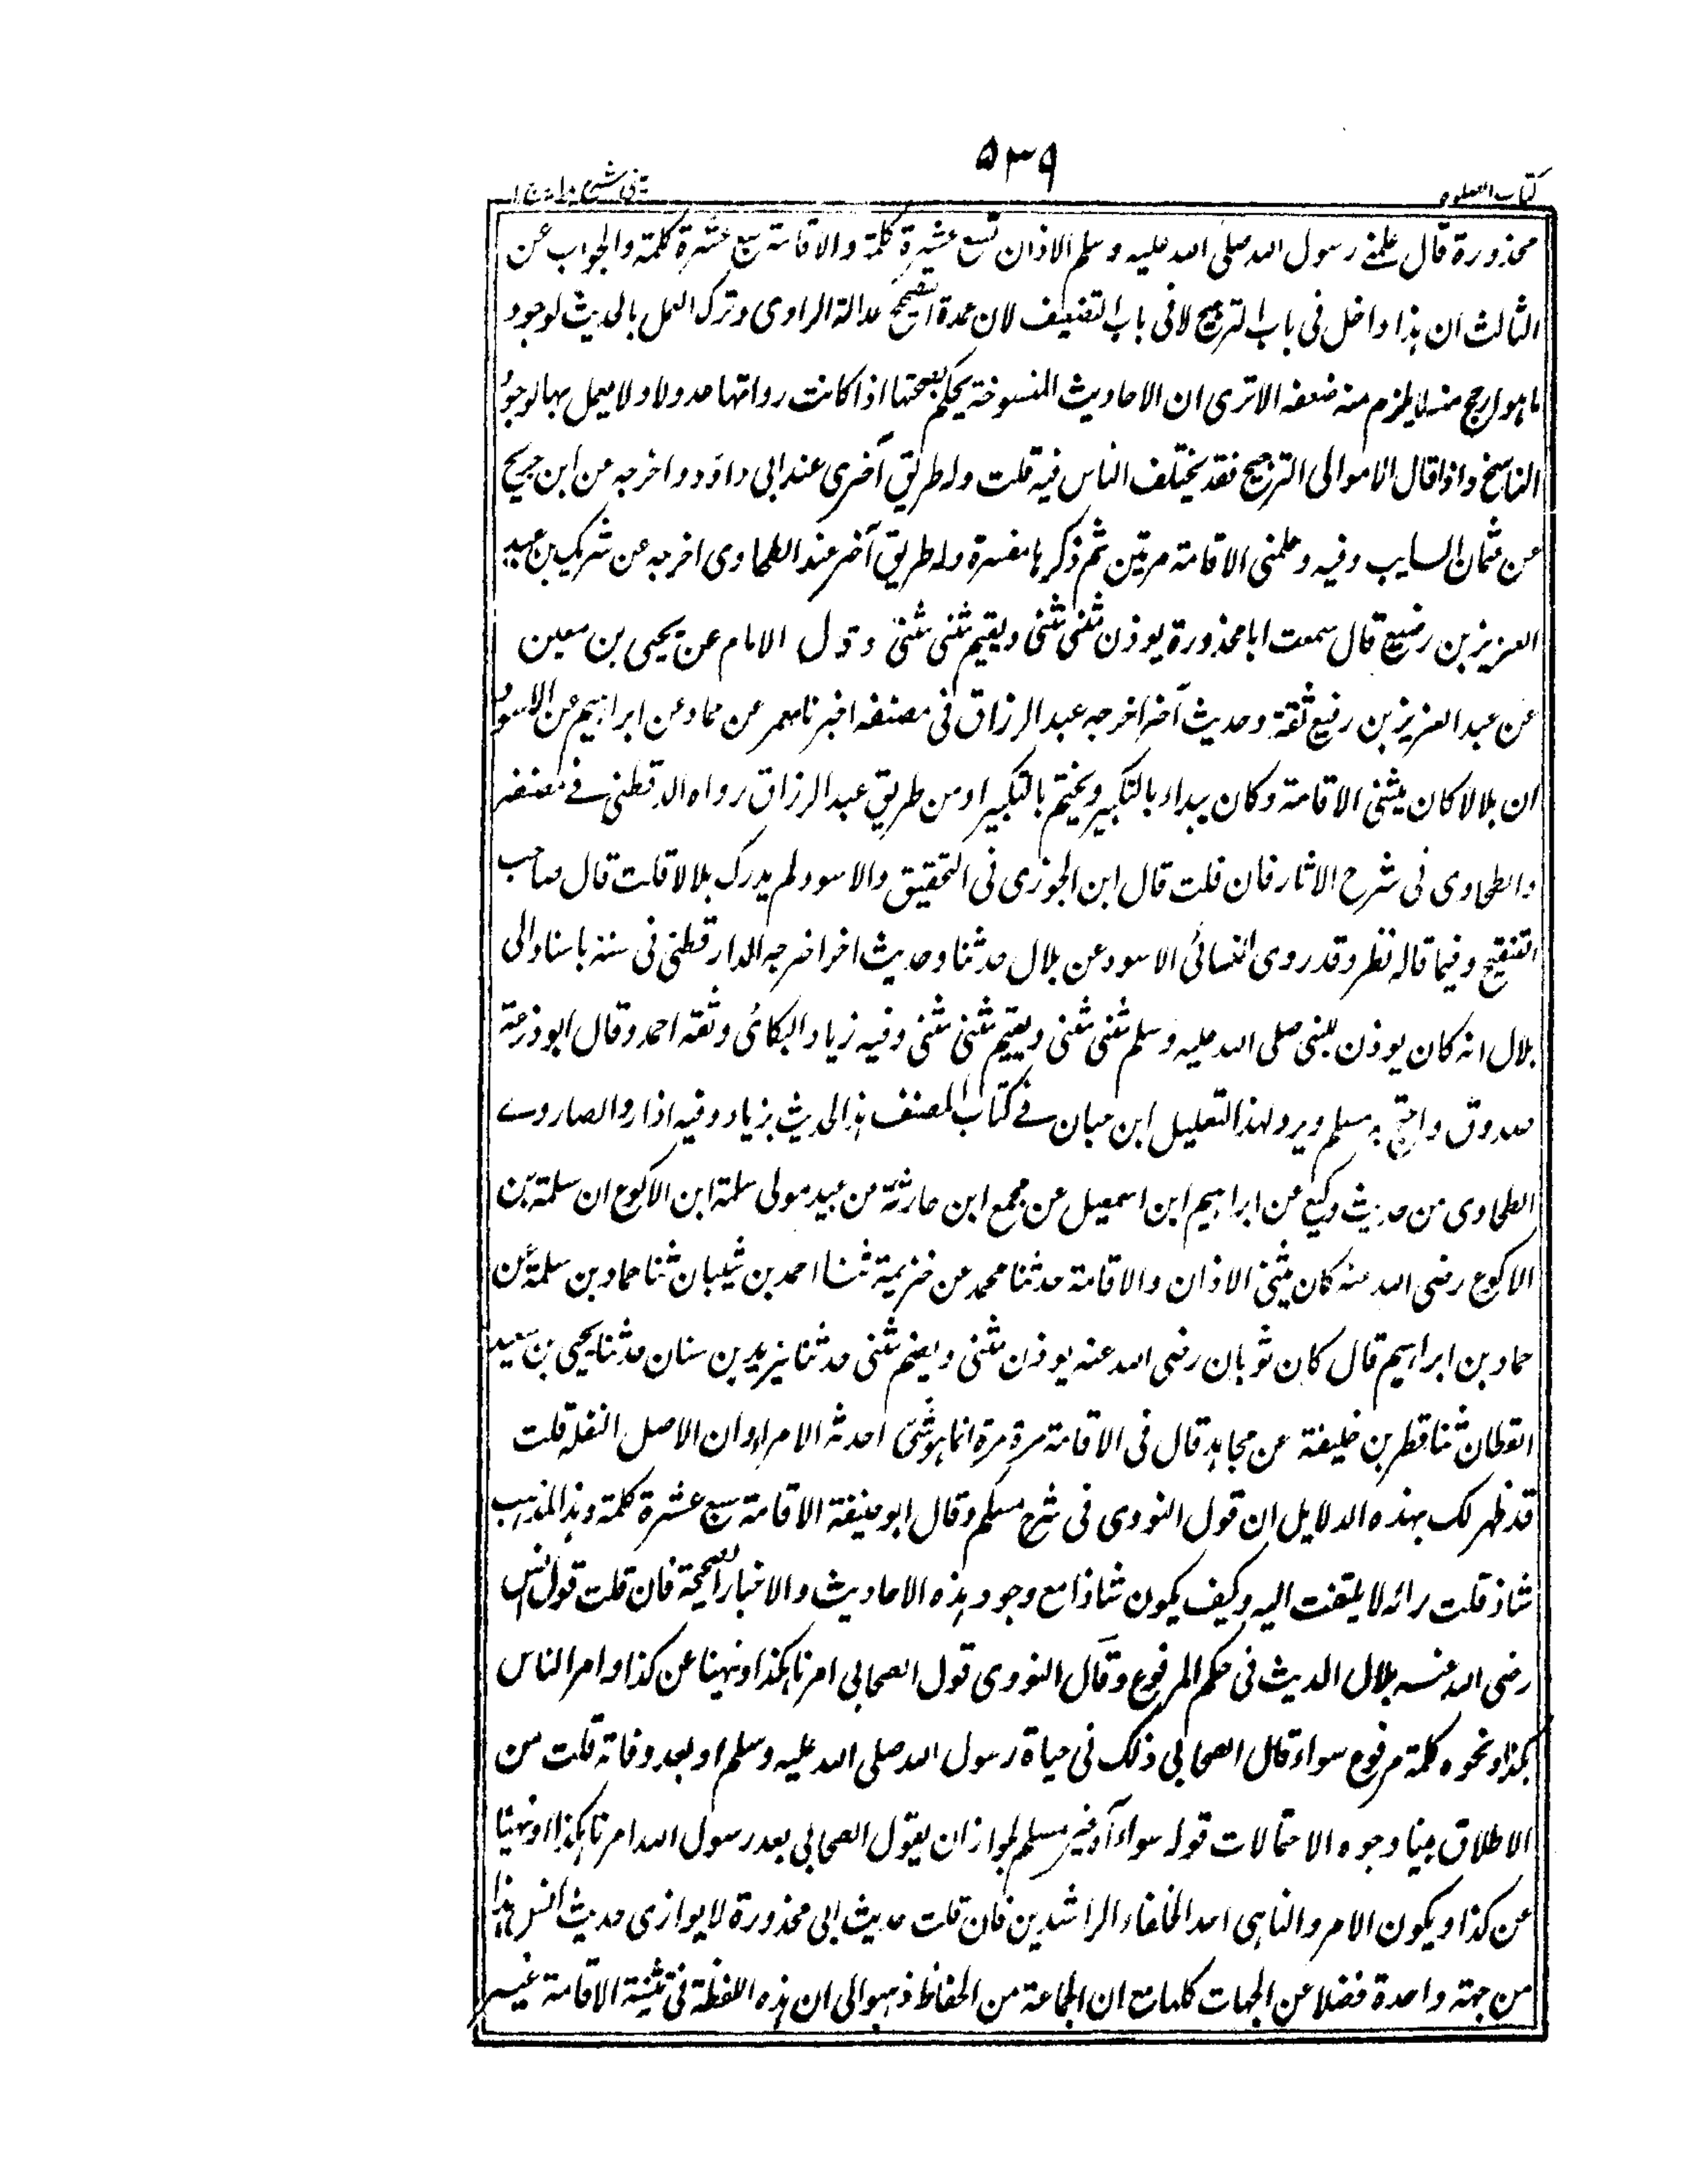 ٥٣٩
كتاب الصلوة
محذورة قال علمنے رسول الله صلى الله عليه وسلم الاذان تسع عشرة كلمة والاقامة سبع عشرة كلمة والجواب عن
الثالث ان هذا داخل فى باب الترجيح لا فى باب التضعيف لان عمدة التصحيح عدالة الراوى وترك العمل بالحديث لوجود
ما هو ارجح منه لا يلزم منه ضعفه الا ترى ان الاحاديث المنسوخة يحكم بصحتها اذا كانت رواتها عدولا ولا يعمل بها لوجود
الناسخ واذا قال الامو الى الترجيح فقد يختلف الناس فيه قلت وله طريق آخرى عند ابى داؤد واخرجه عن ابن جريج
عن عثمان السايب وفيه وعلمنى الاقامة مرتين ثم ذكرها مفسرة وله طريق آخر عند الطحاوى اخرجه عن شريك بن عبد
العزيز بن رفيع قال سمعت ابا محذورة يوذن مثنى مثنى ويقيم مثنى مثنى وقول الامام عن يحيى بن معين
عن عبد العزيز بن رفيع ثقة وحديث آخر اخرجه عبد الرزاق فى مصنفه اخبرنا معمر عن حماد عن ابراهيم عن الاسود
ان بلالا كان يثنى الاقامة وكان يبداء بالتكبير ويختم بالتكبير ومن طريق عبد الرزاق رواه الدقطنى فے مصنفه
والطحاوى فى شرح الاثار فان قلت قال ابن الجوزى فى التحقيق والاسود لم يدرك بلالا قلت قال صاحب
التنقيح وفيما قاله نظر وقد روى النسائى الاسود عن بلال حدثنا وحديث اخر اخرجه الدارقطنى فى سننه باسناد الى
بلال انه كان يوذن للنبى صلى الله عليه وسلم مثنى مثنى ويقيم مثنى مثنى وفيه زياد البكائى وثقه احمد وقال ابو ذرعة
صدوق واحتج به مسلم ويرد لهذا التعليل ابن حبان فے كتاب المصنف هذا الحديث بزياد وفيه اذار والصاروے
الطحاوى من حديث وكيع عن ابراهيم ابن اسمعيل عن مجمع ابن حارثة عن عبيد مولى سلمة ابن الاكوع ان سلمة بن
الاكوع رضى الله عنه كان يثنى الاذان والاقامة حدثنا محمد عن خزيمة ثنا احمد بن شيبان ثنا حماد بن سلمة عن
حماد بن ابراهيم قال كان ثوبان رضى الله عنه يوذن مثنى ويقيم مثنى حدثنا يزيد بن سنان حدثنا يحيى بن سعيد
القطان ثنا قطر بن خليفة عن مجاهد قال فى الاقامة مرة مرة انما هو شئ احدثه الامراء وان الاصل النفله قلت
قد ظهر لك بهذه الدلايل ان قول النووى فى شرح مسلم وقال ابو حنيفة الاقامة سبع عشرة كلمة وهذا المذهب
شاذ قلت رائه لا يلتفت اليه وكيف يكون شاذا مع وجود هذه الاحاديث والاخبار الصحيحة فان قلت قول انس
رضى الله عنه بلال الحديث فى حكم المرفوع وقال النووى قول الصحابى امرنا بكذا ونهينا عن كذا وامر الناس
بكذا ونحوه كلمة مرفوع سواء قال الصحابى ذلك فى حياة رسول الله صلى الله عليه وسلم او بعد وفاته قلت من
الاطلاق بينا وجوه الاحتمالات قوله سواء آه غير مسلم لجواز ان يقول الصحابى بعد رسول الله امرنا بكذا او نهينا
عن كذا ويكون الامر والناهى احد الخلفاء الراشدين فان قلت حديث ابى محذورة لا يوازى حديث انس هذا
من جهة واحدة فضلا عن الجهات كلها مع ان الجماعة من الحفاظ ذهبوا الى ان هذه اللفظة فى تثنية الاقامة غير